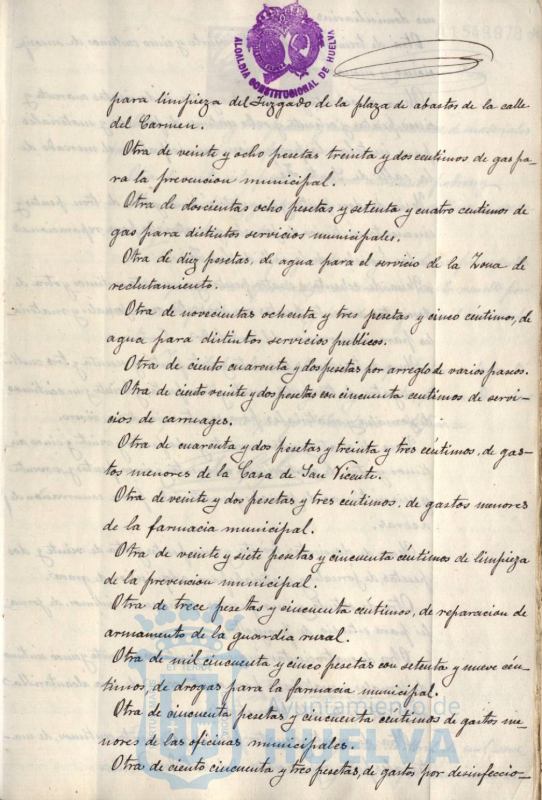 ALCALDIA CONSTITUCIONAL DE HUELVA
para limpieza del Juzgado de la plaza de abastos de la calle
del Carmen.
Otra de veinte y ocho pesetas treinta y dos centimos de gas pa-
ra la prevencion municipal.
Otra de doscientas ocho pesetas y setenta y cuatro centimos de
gas para distintos servicios municipales.
Otra de diez pesetas, de agua para el servicio de la Zona de
reclutamiento.
Otra de novecientas ochenta y tres pesetas y cinco céntimos, de
agua para distintos servicios publicos.
Otra de ciento cuarenta y dos pesetas por arreglo de varios paseos.
Otra de ciento veinte y dos pesetas con cincuenta centimos de servi-
cios de carruages.
Otra de cuarenta y dos pesetas y treinta y tres céntimos, de gas-
tos menores de la Casa de San Vicente.
Otra de veinte y dos pesetas y tres céntimos, de gastos menores
de la farmacia municipal.
Otra de veinte y siete pesetas y cincuenta céntimos de limpieza
de la prevencion municipal.
Otra de trece pesetas y cincuenta céntimos, de reparacion de
armamento de la guardia rural.
Otra de mil cincuenta y cinco pesetas con setenta y nueve cén-
timos, de drogas para la farmacia municipal.
Otra de cincuenta pesetas y cincuenta céntimos de gastos me-
nores de las oficinas municipales.
Otra de ciento cincuenta y tres pesetas, de gastos por desinfeccio-
Ayuntamiento de
HUELVA